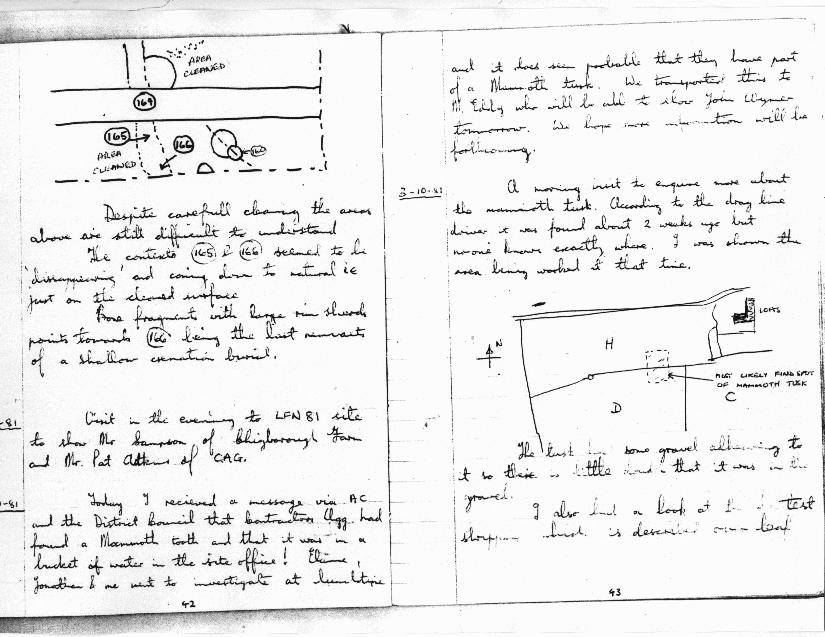 AREA
CLEANED
169
165
166
AREA
CLEANED
Despite carefull cleaning the areas
above are still difficult to understand
The contexts 165 & 166 seemed to be
'disappearing' and coming down to natural ie
just on the cleaned surface
Bone fragments with large rim sherds
points towards 166 being the last remnants
of a shallow cremation burial.
-81
Visit in the evening to LFN 81 site
to show Mr Sampson of Chigborough Farm
and Mr. Pat Adkins of CAG.
-81
Today I recieved a message via AC
and the District Council that Contractors had
found a Mammoth tooth and that it was in a
bucket of water in the site office! Elaine,
Jonathan & me went to investigate at lunchtime
42
and it does seem probable that they have part
of a Mammoth tusk. We transported this to
M. Eddy who will be able to show John Wymer
tomorrow. We hope more information will be
forthcoming.
3-10-81
A morning visit to enquire more about
the mammoth tusk. According to the drag line
driver it was found about 2 weeks ago but
no-one knows exactly where. I was shown the
area being worked at that time.
LOFTS
N
H
MOST LIKELY FINDSPOT
OF MAMMOTH TUSK
C
D
The tusk has some gravel adhering to
it so there is little doubt that it was in the
gravel.
I also had a look at the test
is described
43